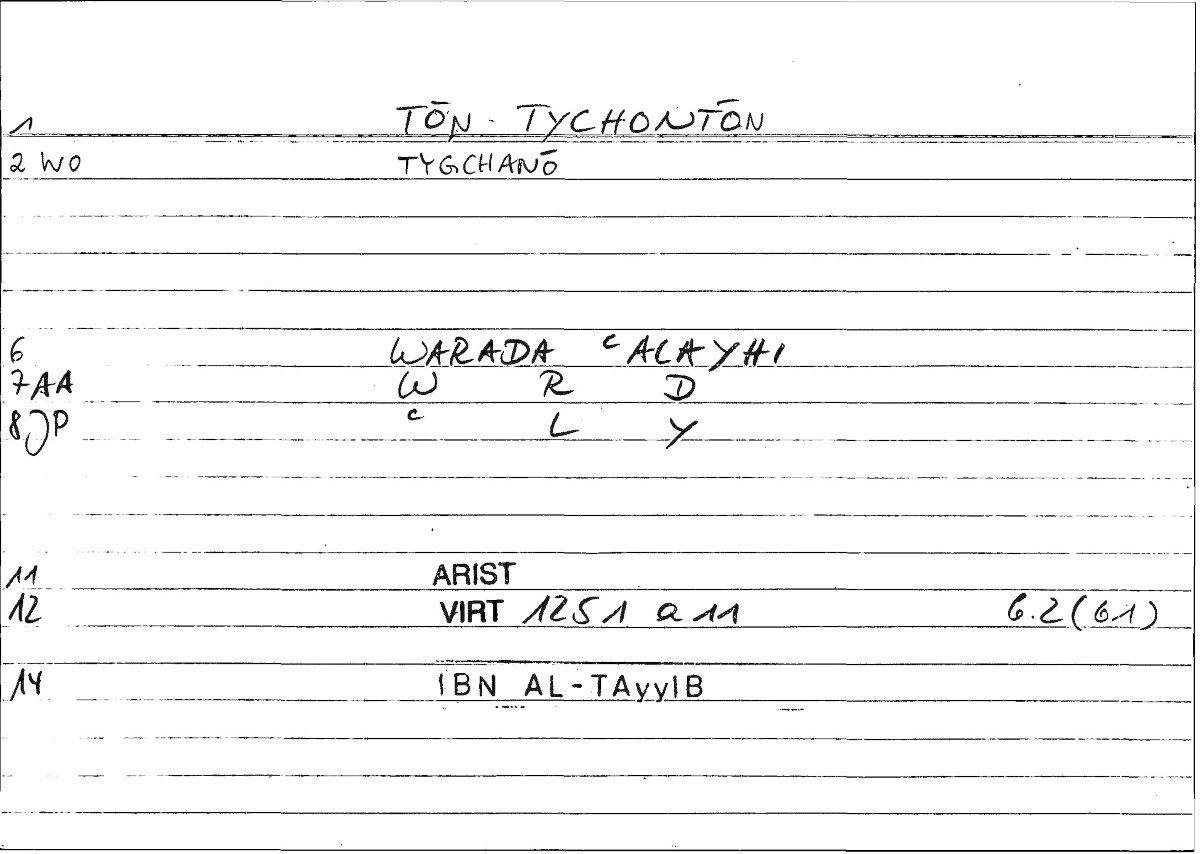 1 TŌN - TYCHONTŌN
2 WO TYGCHANŌ
6 WARADA ᶜALAYHI
7AA W R D
8JP ᶜ L Y
11 ARIST
12 VIRT 1251 a 11 6.2(61)
14 IBN AL-TAyyIB